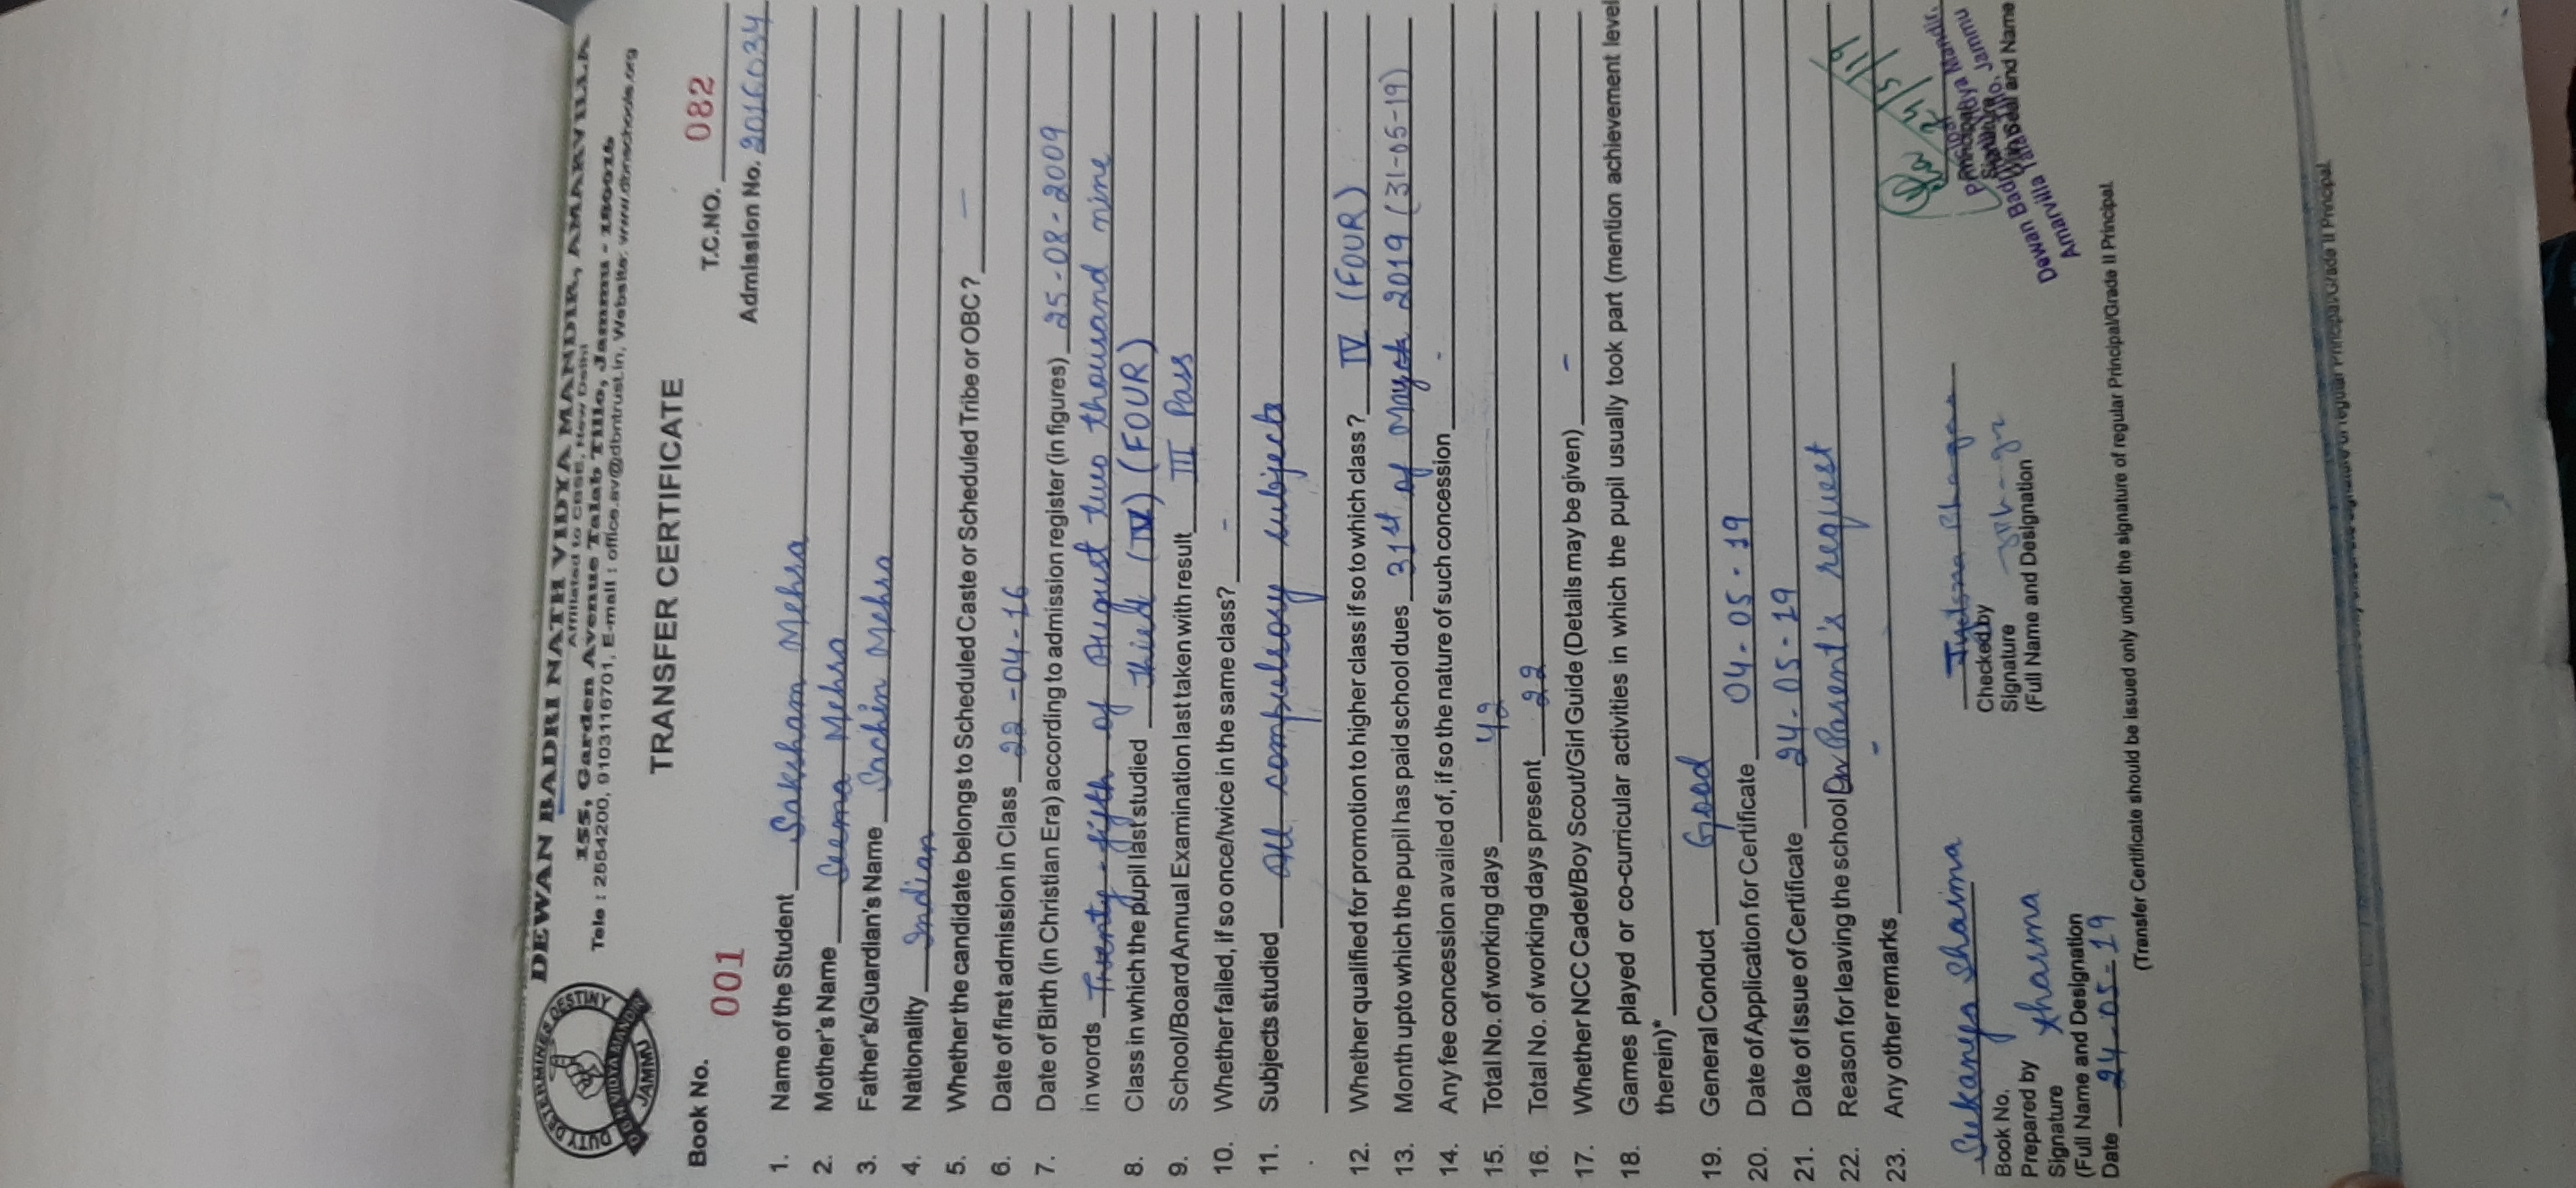 DUTY DETERMINES DESTINY
JAMMU
DEWAN BADRI NATH VIDYA MANDIR, AMARVILLA
Affiliated to CBSE, New Delhi
155, Garden Avenue Talab Tillo, Jammu - 180016
Tele : 2554200, 9103116701, E-mail : office.sv@dbntrust.in, Website: www.dbnschools.org
TRANSFER CERTIFICATE
Book No. 001 T.C.NO. 082
Admission No. 2016034
1. Name of the Student Saksham Mehra
2. Mother's Name Seema Mehra
3. Father's/Guardian's Name Sachin Mehra
4. Nationality Indian
5. Whether the candidate belongs to Scheduled Caste or Scheduled Tribe or OBC? -
6. Date of first admission in Class 22-04-16
7. Date of Birth (in Christian Era) according to admission register (in figures) 25-08-2009
in words Twenty-fifth of August two thousand nine
8. Class in which the pupil last studied (IV) (FOUR)
9. School/Board Annual Examination last taken with result III Pass
10. Whether failed, if so once/twice in the same class? -
11. Subjects studied All compulsory subjects
12. Whether qualified for promotion to higher class if so to which class? IV (FOUR)
13. Month upto which the pupil has paid school dues 31st of May 2019 (31-05-19)
14. Any fee concession availed of, if so the nature of such concession -
15. Total No. of working days 42
16. Total No. of working days present 22
17. Whether NCC Cadet/Boy Scout/Girl Guide (Details may be given) -
18. Games played or co-curricular activities in which the pupil usually took part (mention achievement level
therein)*
19. General Conduct Good
20. Date of Application for Certificate 04-05-19
21. Date of Issue of Certificate 24-05-19
22. Reason for leaving the school On Parent's request
23. Any other remarks -
Sukanya Sharma
Book No.
Prepared by
Signature Sharma
(Full Name and Designation
Date 24-05-19
Checked by
Signature
(Full Name and Designation
24/5/19
Principal
Dewan Badri Nath Vidya Mandir,
Amarvilla Talab Tillo, Jammu
(Transfer Certificate should be issued only under the signature of regular Principal/Grade II Principal.